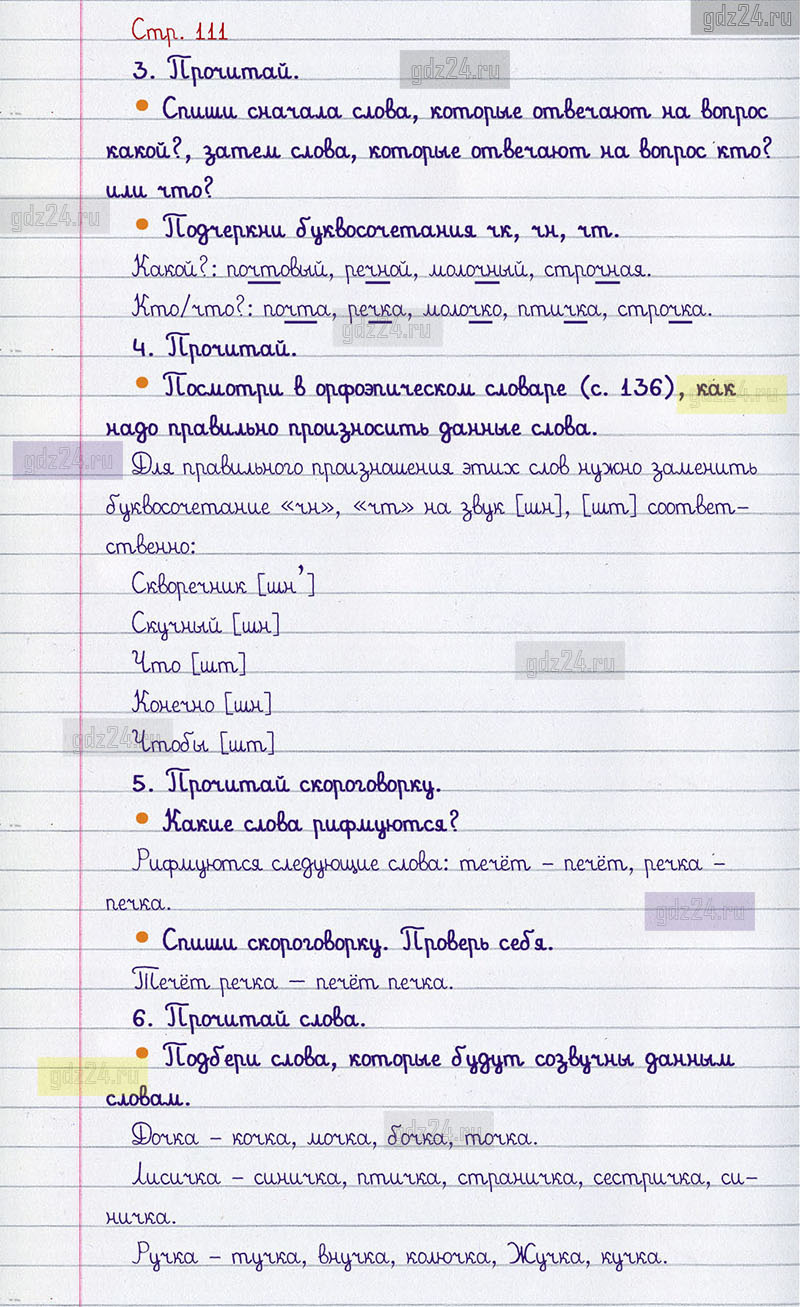 Стр. 111
gdz24.ru
3. Прочитай.
gdz24.ru
• Спиши сначала слова, которые отвечают на вопрос
какой?, затем слова, которые отвечают на вопрос кто?
или что?
gdz24.ru
• Подчеркни буквосочетания чк, чн, чт.
Какой?: почтовый, речной, молочный, строчная.
Кто/что?: почта, речка, молочко, птичка, строчка.
gdz24.ru
4. Прочитай.
• Посмотри в орфоэпическом словаре (с. 136), как
gdz24.ru
надо правильно произносить данные слова.
gdz24.ru
Для правильного произношения этих слов нужно заменить
буквосочетание «чн», «чт» на звук [шн], [шт] соответ-
ственно:
Скворечник [шн’]
Скучный [шн]
Что [шт]
gdz24.ru
Конечно [шн]
gdz24.ru
Чтобы [шт]
5. Прочитай скороговорку.
• Какие слова рифмуются?
Рифмуются следующие слова: течёт – печёт, речка –
печка.
gdz24.ru
• Спиши скороговорку. Проверь себя.
Течёт речка – печёт печка.
6. Прочитай слова.
• Подбери слова, которые будут созвучны данным
gdz24.ru
словам.
Дочка – кочка, мочка, бочка, точка.
gdz24.ru
Лисичка – синичка, птичка, страничка, сестричка, си-
ничка.
Ручка – тучка, внучка, колючка, Жучка, кучка.